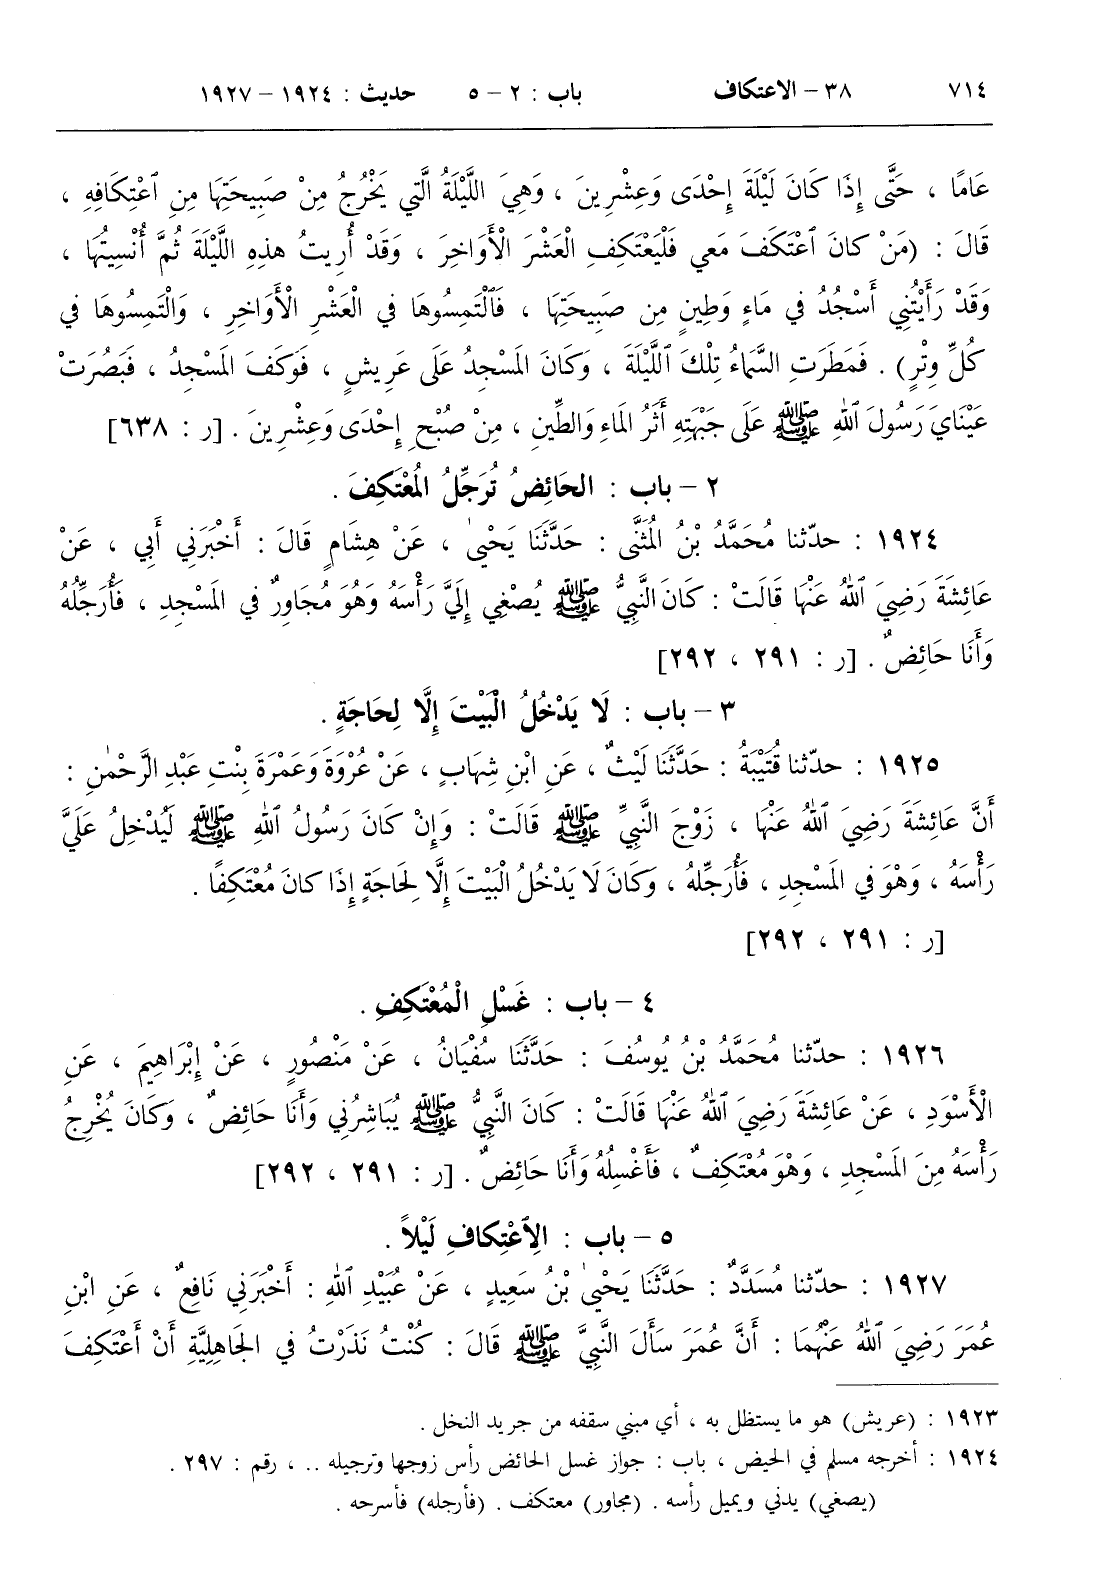 ٧١٤ ٣٨ – الاعتكاف باب : ٢ – ٥ حديث : ١٩٢٤ – ١٩٢٧
عَامًا ، حَتَّى إِذَا كَانَ لَيْلَةَ إِحْدَى وَعِشْرِينَ ، وَهِيَ اللَّيْلَةُ الَّتِي يَخْرُجُ مِنْ صَبِيحَتِهَا مِنِ ٱعْتِكَافِهِ ،
قَالَ : (مَنْ كانَ ٱعْتَكَفَ مَعِي فَلْيَعْتَكِفِ الْعَشْرَ الْأَوَاخِرَ ، وَقَدْ أُرِيتُ هٰذِهِ اللَّيْلَةَ ثُمَّ أُنْسِيتُهَا ،
وَقَدْ رَأَيْتُنِي أَسْجُدُ في مَاءٍ وَطِينٍ مِن صَبِيحَتِهَا ، فَٱلْتَمِسُوهَا في الْعَشْرِ الْأَوَاخِرِ ، وَالْتَمِسُوهَا في
كُلِّ وِتْرٍ) . فَمَطَرَتِ السَّمَاءُ تِلْكَ ٱللَّيْلَةَ ، وَكَانَ المَسْجِدُ عَلَى عَرِيشٍ ، فَوَكَفَ المَسْجِدُ ، فَبَصُرَتْ
عَيْنَايَ رَسُولَ ٱللهِ ﷺ عَلَى جَبْهَتِهِ أَثَرُ المَاءِ وَالطِّينِ ، مِنْ صُبْحِ إِحْدَى وَعِشْرِينَ . [ر : ٦٣٨]
٢ – باب : الحَائِضُ تُرَجِّلُ المُعْتَكِفَ .
١٩٢٤ : حدّثنا مُحَمَّدُ بْنُ المُثَنَّى : حَدَّثَنَا يَحْيىٰ ، عَنْ هِشَامٍ قَالَ : أَخْبَرَنِي أَبِي ، عَنْ
عَائِشَةَ رَضِيَ ٱللهُ عَنْهَا قَالَتْ : كَانَ النَّبِيُّ ﷺ يُصْغِي إِلَيَّ رَأْسَهُ وَهُوَ مُجَاوِرٌ في المَسْجِدِ ، فَأُرَجِّلُهُ
وَأَنَا حَائِضٌ . [ر : ٢٩١ ، ٢٩٢]
٣ – باب : لَا يَدْخُلُ الْبَيْتَ إِلَّا لِحَاجَةٍ .
١٩٢٥ : حدّثنا قُتَيْبَةُ : حَدَّثَنَا لَيْثٌ ، عَنِ ابْنِ شِهَابٍ ، عَنْ عُرْوَةَ وَعَمْرَةَ بِنْتِ عَبْدِ الرَّحْمٰنِ :
أَنَّ عَائِشَةَ رَضِيَ ٱللهُ عَنْهَا ، زَوْجَ النَّبِيِّ ﷺ قَالَتْ : وَإِنْ كَانَ رَسُولُ ٱللهِ ﷺ لَيُدْخِلُ عَلَيَّ
رَأْسَهُ ، وَهْوَ في المَسْجِدِ ، فَأُرَجِّلُهُ ، وَكَانَ لَا يَدْخُلُ الْبَيْتَ إِلَّا لِحَاجَةٍ إِذَا كانَ مُعْتَكِفًا .
[ر : ٢٩١ ، ٢٩٢]
٤ – باب : غَسْلِ الْمُعْتَكِفِ .
١٩٢٦ : حدّثنا مُحَمَّدُ بْنُ يُوسُفَ : حَدَّثَنَا سُفْيَانُ ، عَنْ مَنْصُورٍ ، عَنْ إِبْرَاهِيمَ ، عَنِ
الْأَسْوَدِ ، عَنْ عَائِشَةَ رَضِيَ ٱللهُ عَنْهَا قَالَتْ : كَانَ النَّبِيُّ ﷺ يُبَاشِرُنِي وَأَنَا حَائِضٌ ، وَكَانَ يُخْرِجُ
رَأْسَهُ مِنَ المَسْجِدِ ، وَهْوَ مُعْتَكِفٌ ، فَأَغْسِلُهُ وَأَنَا حَائِضٌ . [ر : ٢٩١ ، ٢٩٢]
٥ – باب : الِاعْتِكافِ لَيْلاً .
١٩٢٧ : حدّثنا مُسَدَّدٌ : حَدَّثَنَا يَحْيىٰ بْنُ سَعِيدٍ ، عَنْ عُبَيْدِ ٱللهِ : أَخْبَرَنِي نَافِعٌ ، عَنِ ابْنِ
عُمَرَ رَضِيَ ٱللهُ عَنْهُمَا : أَنَّ عُمَرَ سَأَلَ النَّبِيَّ ﷺ قَالَ : كُنْتُ نَذَرْتُ في الجَاهِلِيَّةِ أَنْ أَعْتَكِفَ
١٩٢٣ : (عريش) هو ما يستظل به ، أي مبني سقفه من جريد النخل .
١٩٢٤ : أخرجه مسلم في الحيض ، باب : جواز غسل الحائض رأس زوجها وترجيله .. ، رقم : ٢٩٧ .
(يصغي) يدني ويميل رأسه . (مجاور) معتكف . (فأرجله) فأسرحه .